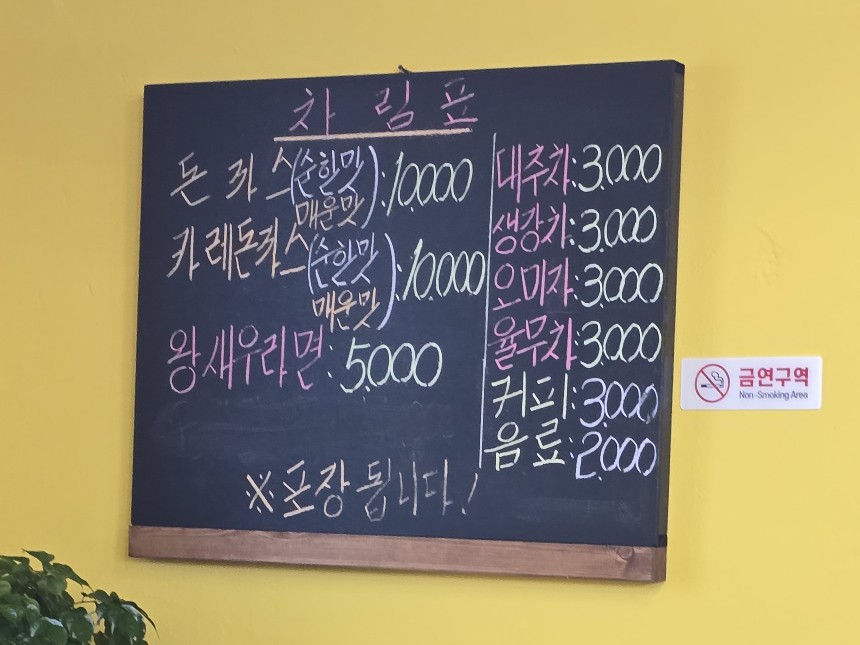 차림표
돈 까스(순한맛 매운맛):10,000
카레돈까스(순한맛 매운맛):10,000
왕새우라면:5,000
※포장 됩니다!
대추차:3,000
생강차:3,000
오미자:3,000
율무차:3,000
커피:3,000
음료:2,000
금연구역
Non-Smoking Area